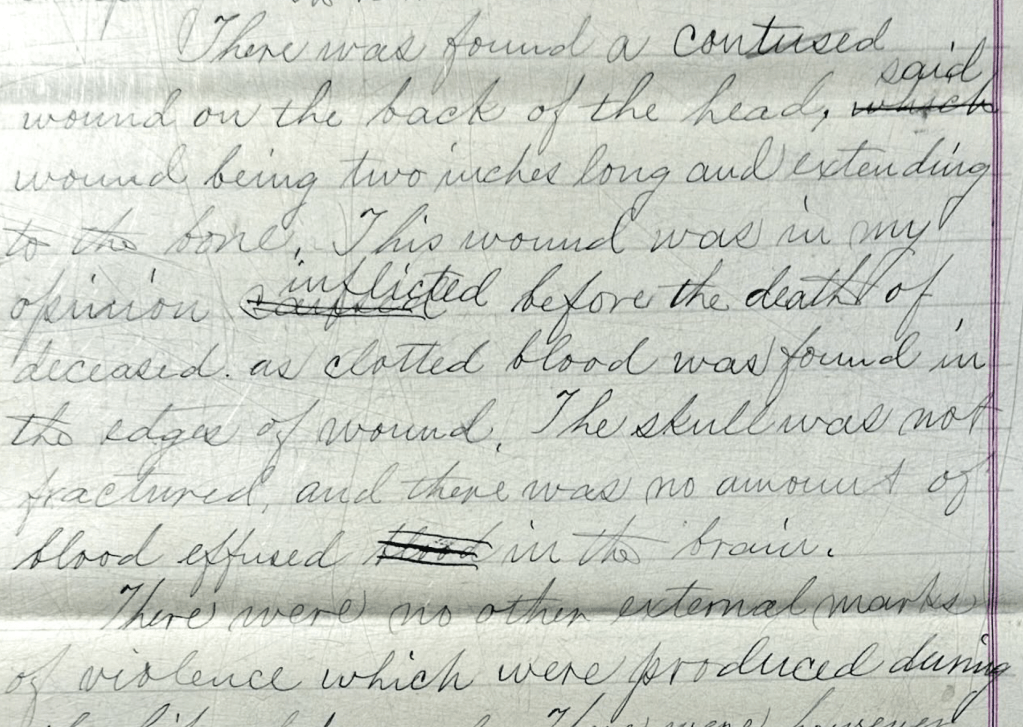 There was found a contused
said
wound on the back of the head, which
wound being two inches long and extending
to the bone. This wound was in my
inflicted
opinion before the death of
deceased. as clotted blood was found in
the edges of wound. The skull was not
fractured, and there was no amount of
blood effused blood in the brain.
There were no other external marks
of violence which were produced during
There were however